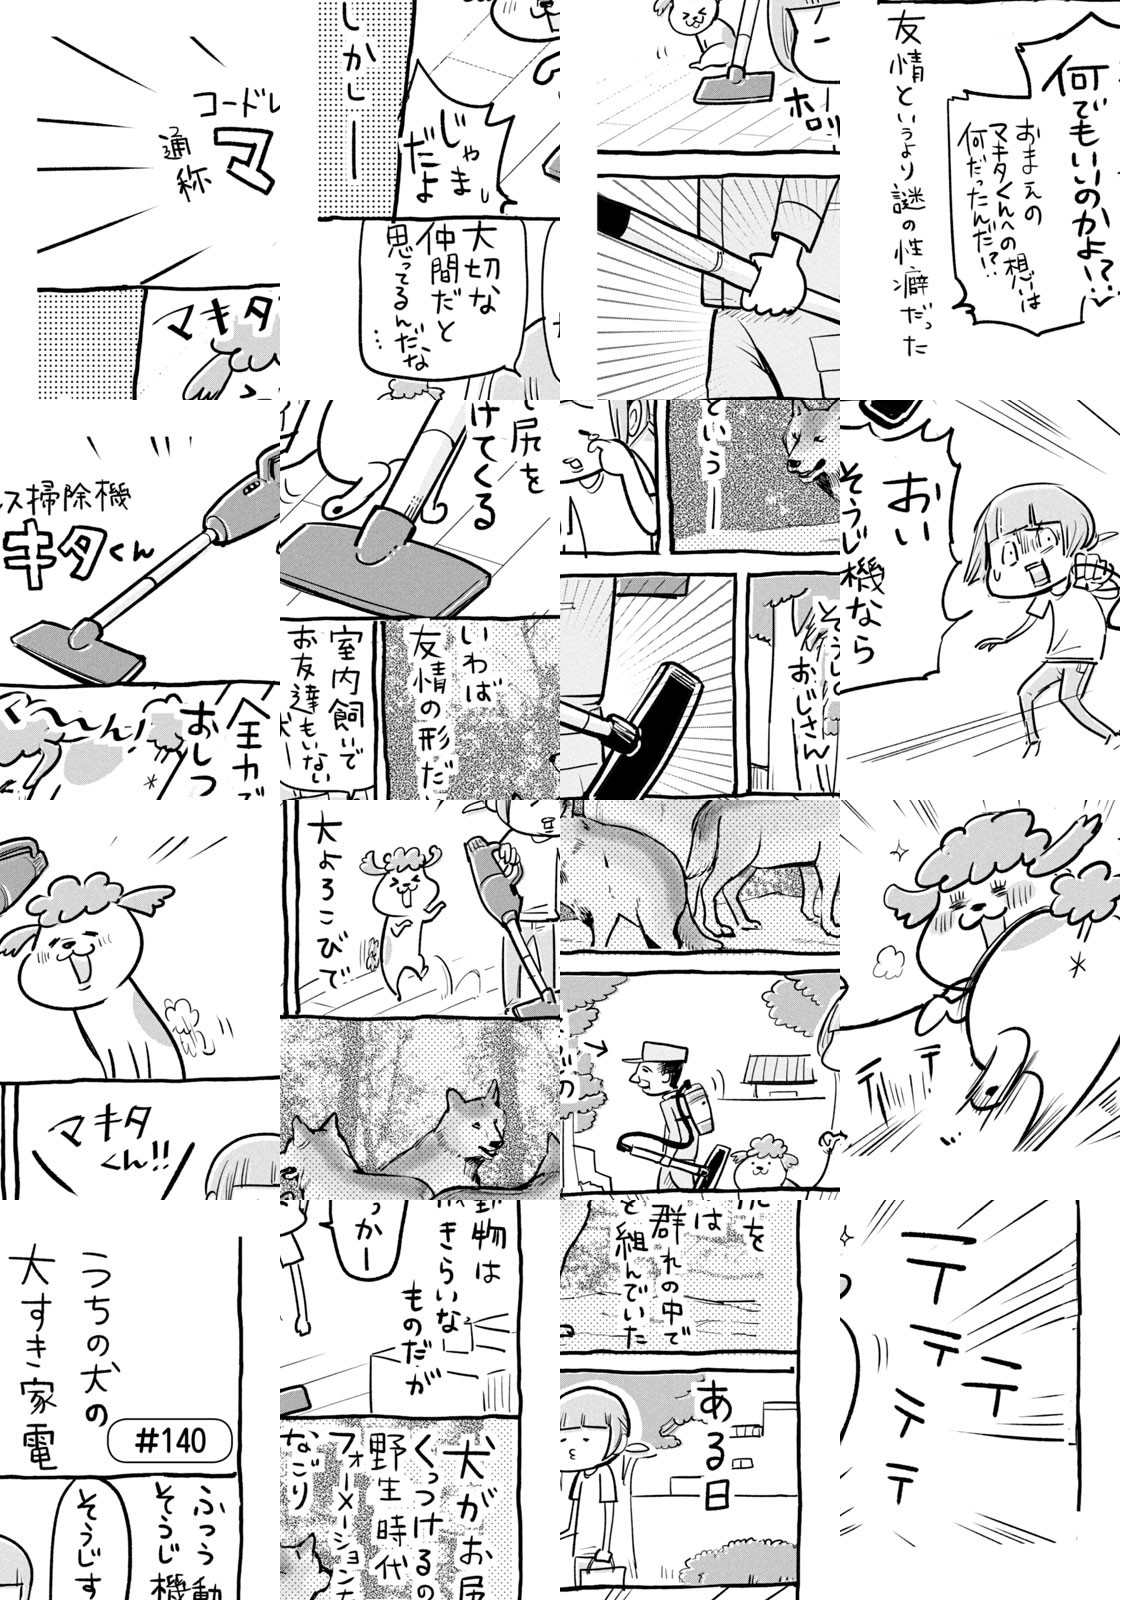 コードレ
マ
通称
マキタ
しかし――
じゃまし
だよ
大切な
仲間だと
思ってるんだな…
ホロ
何でもいいのかよ!?
おまえの
マキタくんへの想いは
何だったんだ!?
友情というより謎の性癖だった
ス掃除機
キタくん
く〜〜ん!
全力で
おしつ
尻を
けてくる
いわば
友情の形だ
室内飼いで
お友達もいない
という――
そうじの
おじさん
おい
そうじ機なら
マキタ
くん!!
大よろこびで
テ
テ
うちの犬の
大すき家電
#140
ふつう動
そうじ機
そうじす
動物は
きらいな
ものだが
っかー
犬がお尻
くっつけるの
野生時代
フォーメーション
なごり
を
は
群れの中で
を組んでいた
ある日
テ
テ
テ
テ
テ